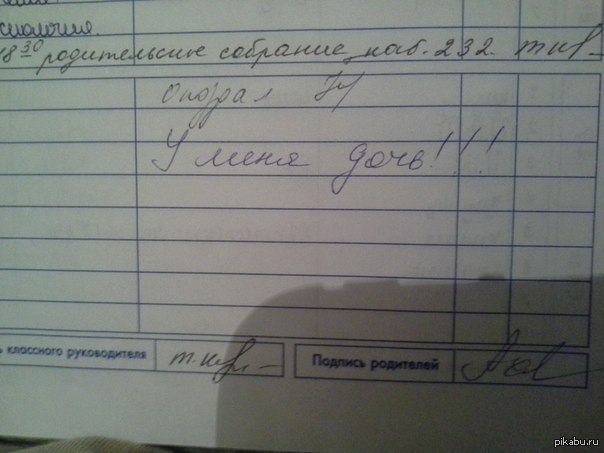 18³⁰ родительское собрание каб. 232.
опоздал
У меня дочь!!!
ь классного руководителя
Подпись родителей
pikabu.ru